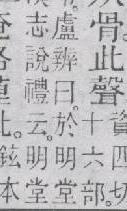 骨此聲
資四切
十六部
盧辨曰。於明堂
志說禮云。明堂
此。鉉本